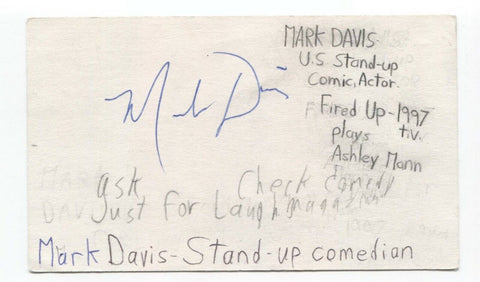 MARK DAVIS
U.S Stand-up
Comic, Actor.
Mark Davis
Fired Up-1997
plays t.v.
Ashley Mann
ask Check Comedy
Just For Laugh
Mark Davis-Stand-up comedian